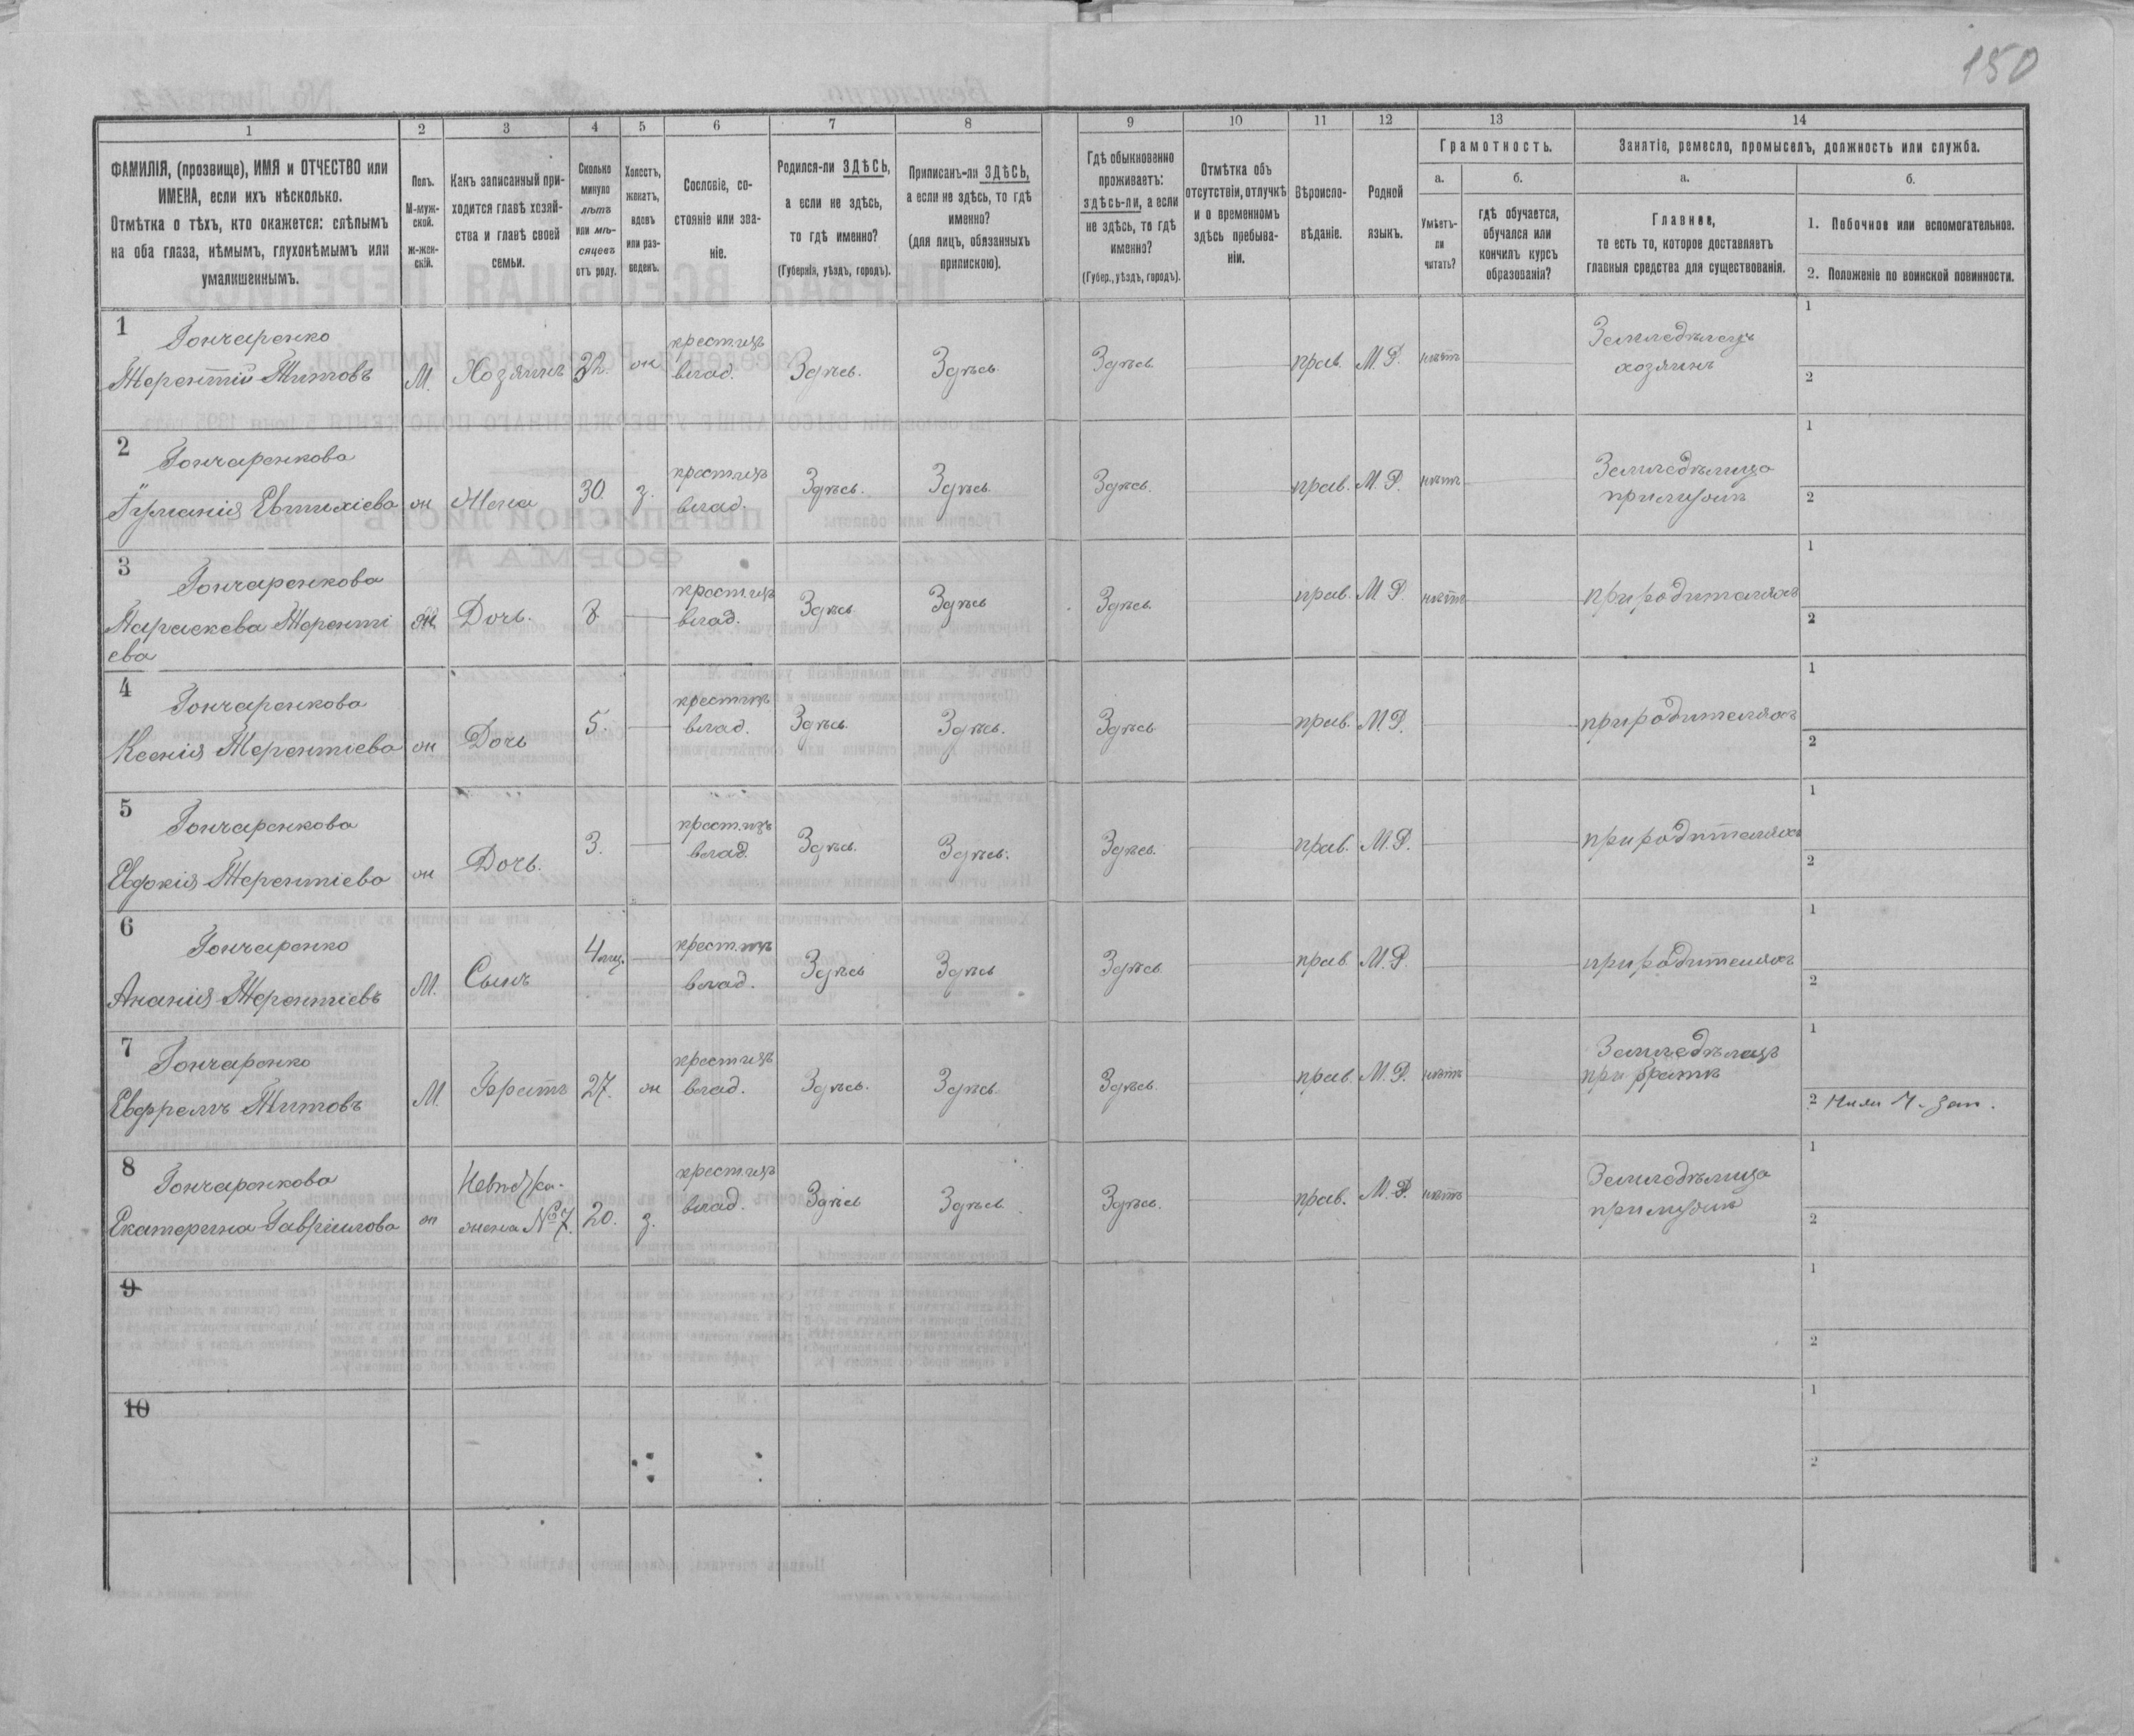 150
1 2 3 4 5 6 7 8 9 10 11 12 13 14
ФАМИЛІЯ, (прозвище), ИМЯ и ОТЧЕСТВО или
ИМЕНА, если ихъ нѣсколько.
Отмѣтка о тѣхъ, кто окажется: слѣпымъ
на оба глаза, нѣмымъ, глухонѣмымъ или
умалишеннымъ.
Полъ.
М-муж-
ской.
ж-жен-
скій.
Какъ записанный при-
ходится главѣ хозяй-
ства и главѣ своей
семьи.
Сколько
минуло
лѣтъ
или мѣ-
сяцевъ
отъ роду.
Холостъ,
женатъ,
вдовъ
или раз-
веденъ.
Сословіе, со-
стояніе или зва-
ніе.
Родился-ли ЗДѢСЬ,
а если не здѣсь,
то гдѣ именно?
(Губернія, уѣздъ, городъ).
Приписанъ-ли ЗДѢСЬ,
а если не здѣсь, то гдѣ
именно?
(для лицъ, обязанныхъ
припискою).
Гдѣ обыкновенно
проживаетъ:
здѣсь-ли, а если
не здѣсь, то гдѣ
именно?
(Губер., уѣздъ, городъ).
Отмѣтка объ
отсутствіи, отлучкѣ
и о временномъ
здѣсь пребыва-
ніи.
Вѣроиспо-
вѣданіе.
Родной
языкъ.
Грамотность.
а.
Умѣетъ-
ли
читать?
б.
гдѣ обучается,
обучался или
кончилъ курсъ
образованія?
Занятіе, ремесло, промыселъ, должность или служба.
а.
Главное,
то есть то, которое доставляетъ
главныя средства для существованія.
б.
1. Побочное или вспомогательное.
2. Положеніе по воинской повинности.
1 Гончаренко
Терентій Титовъ М. Хозяинъ 32 ж крест. изъ влад. Здѣсь. Здѣсь Здѣсь. прав. М. Р. нѣтъ Земледѣлецъ хозяинъ 1 2
2 Гончаренкова
Евтихіева ж Жена 30. з. крест. изъ влад. Здѣсь. Здѣсь. Здѣсь. прав. М. Р. нѣтъ Земледѣлица при мужѣ 1 2
3 Гончаренкова
Параскева Терентіева ж Дочь. 8 крест. изъ влад. Здѣсь Здѣсь Здѣсь. прав. М Р. нѣтъ при родителяхъ 1 2
4 Гончаренкова
Ксенія Терентіева ж Дочь 5. крест. изъ влад. Здѣсь. Здѣсь. Здѣсь прав. М Р. при родителяхъ 1 2
5 Гончаренкова
Евдокія Терентіева ж Дочь. 3. крест. изъ влад. Здѣсь. Здѣсь. Здѣсь. прав. М. Р. при родителяхъ 1 2
6 Гончаренко
Ананія Терентіевъ М. Сынъ 4 мц. крест. изъ влад. Здѣсь Здѣсь Здѣсь прав. М. Р. при родителяхъ 1 2
7 Гончаренко
Евфремъ Титовъ М. Братъ 27. ж крест. изъ влад. Здѣсь. Здѣсь. Здѣсь. прав. М. Р. нѣтъ Земледѣлецъ при братѣ 1 2
8 Гончаренкова
Екатерина Гавріилова ж Невѣстка- жена №7. 20. з. крест. изъ влад. Здѣсь Здѣсь. Здѣсь. прав. М. Р. нѣтъ Земледѣлица при мужѣ 1 2
9 1 2
10 1 2